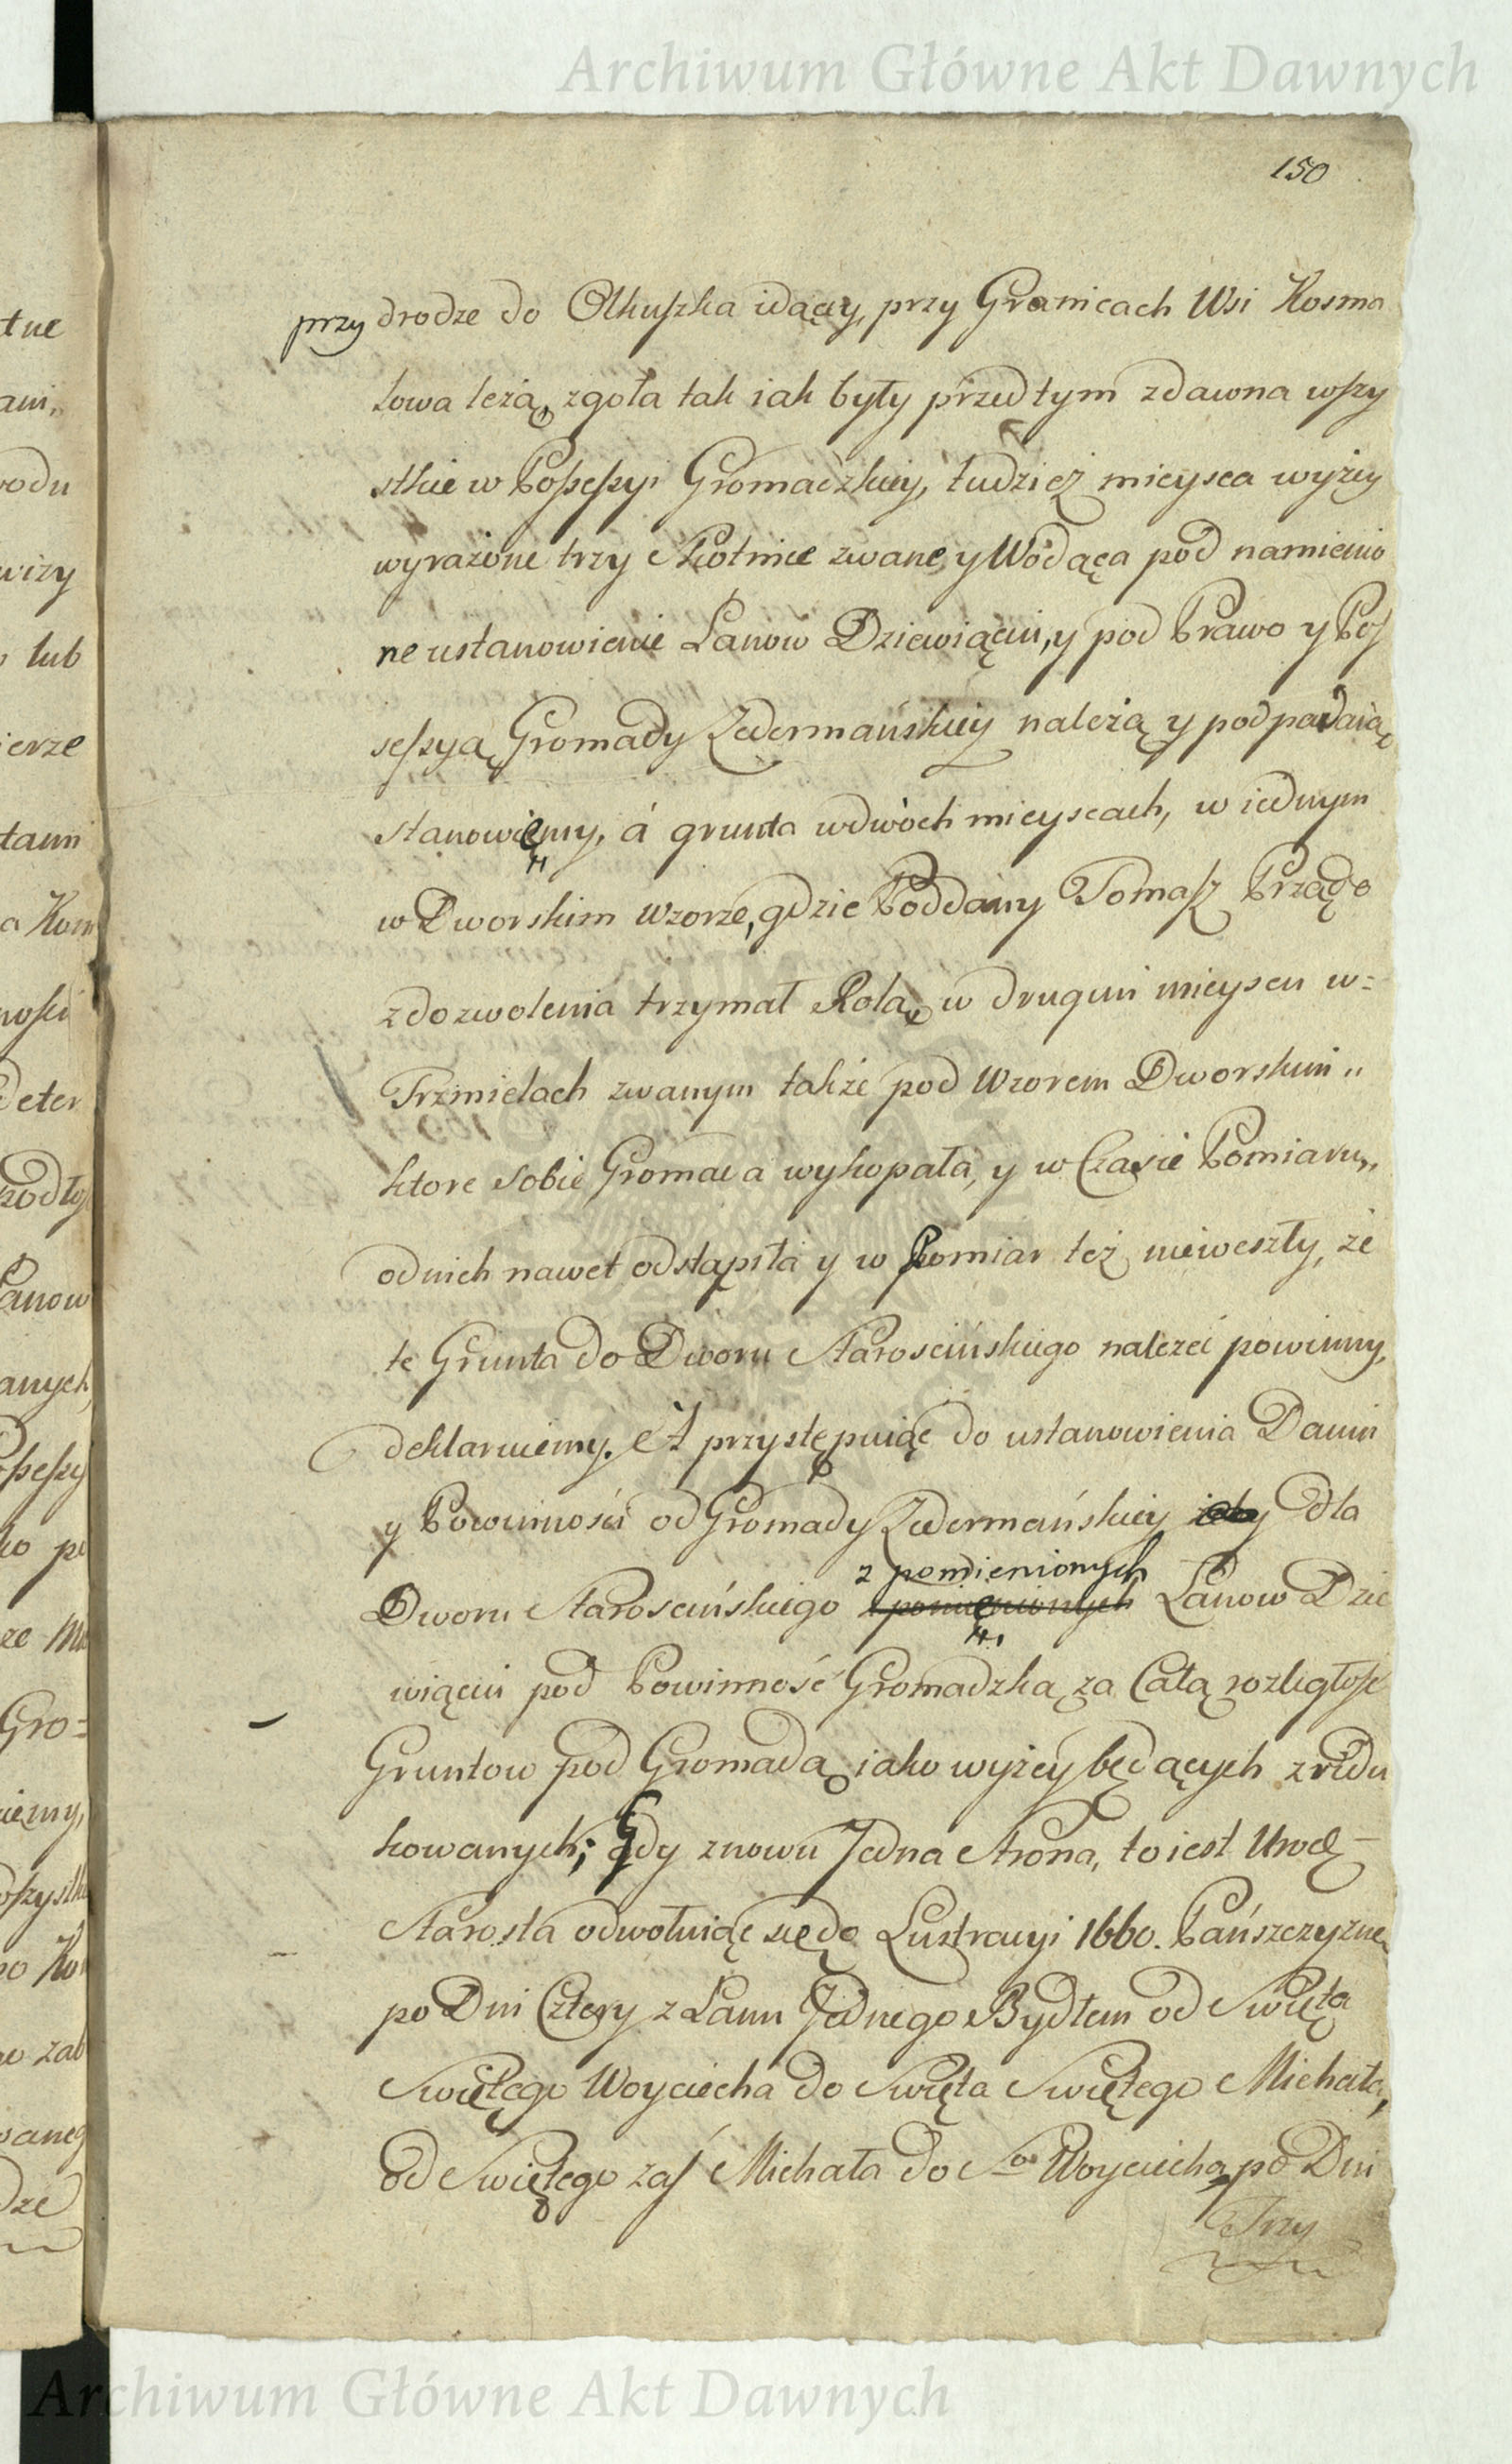 Archiwum Główne Akt Dawnych
150
przy drodze do Olkuszka idącey, przy Granicach Wsi Kosmo
lowa leżą, zgoła tak iak były przedtym zdawna wszy
stkie w Possessyi Gromadzkiey, tudzież mieysca wyżey
wyrażone trzy Kotnice zwane, y Wodąca pod namienio
ne ustanowienie Łanow Dziewiąciu, y pod Prawo y Pos
sessyą Gromady Zedermańskiey należą y podpadaią
stanowięmy, á grunta w dwóch mieyscach, w iednym
w Dworskim Wzorze, gdzie Poddany Tomasz Prządo
z dozwolenia trzymał Rolą, w drugim mieyscu w=
Trzmielach zwanym także pod Wzorem Dworskim „
ktore sobie Gromada wykopała, y w Czasie Pomiaru „
od nich nawet odstąpiła y w Pomiar też nieweszły, że
te Grunta do Dworu Starościńskiego należeć powinny,
deklaruiemy. A przystępuiąc do ustanowienia Danin
y Powinności od Gromady Zedermańskiey dla
z pomienionych
Dworu Starościńskiego z pomięnionych Łanow Dzie
wiąciu pod Powinność Gromadzką za Całą rozległość
Gruntow pod Gromadą iako wyżey będących zredu
kowanych; Gdy znowu Jedna Strona, to iest Urodz
Starosta odwołuiąc się do Lustracyi 1660. Pańszczyznę
po Dni Cztery z Łanu Jednego Bydłem od Swięta
Swiętego Woyciecha do Swięta Swiętego Michała,
od Swiętego zaś Michała do Sgo Woyciecha, po Dni
Trzy
tne
ani„
wodu
wizy
lub
ierze
tami
a Kom
ności
Deter
Łanow
anych
Gro=
uiemy,
o zab
waneg
dze
Archiwum Główne Akt Dawnych